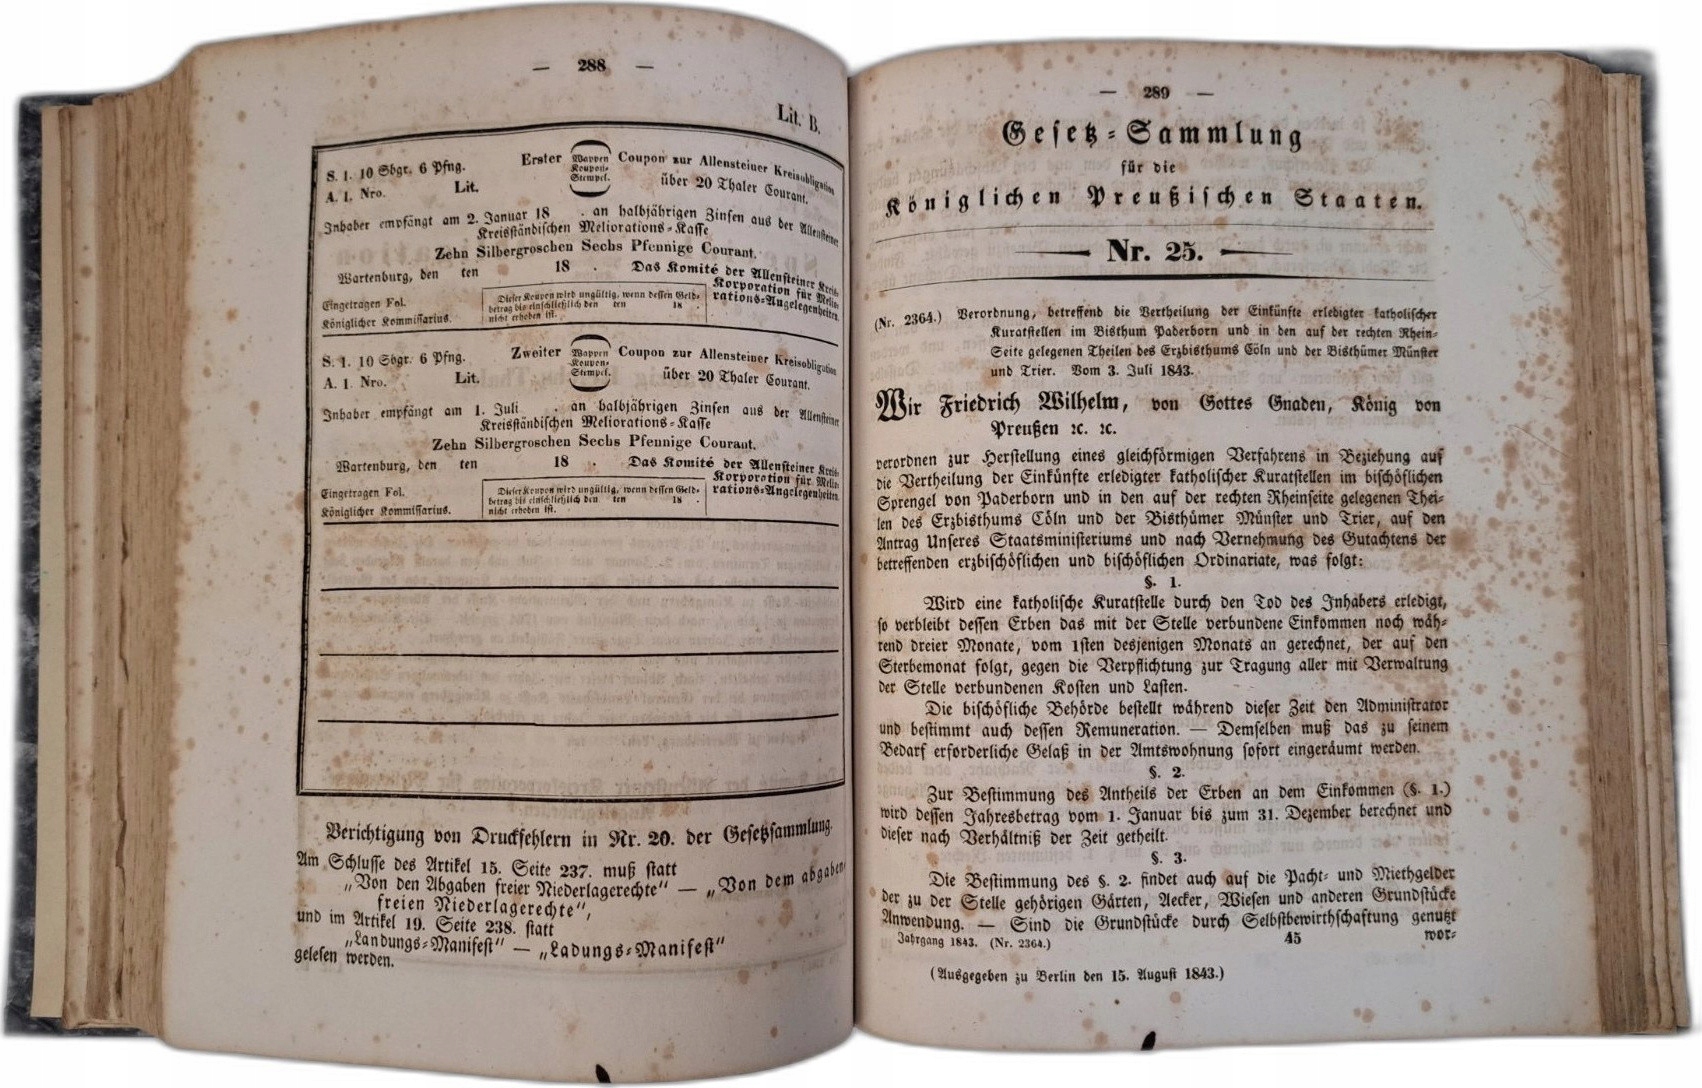 — 288 —
Lit. B.
S. 1. 10 Sbgr. 6 Pfng.
A. 1. Nro. Lit.
Erster
Wappen
Koupon-
Stempel.
Coupon zur Allensteiner Kreisobligation
über 20 Thaler Courant.
Inhaber empfängt am 2. Januar 18 . an halbjährigen Zinsen aus der Allensteiner
Kreisständischen Meliorations-Kasse
Zehn Silbergroschen Sechs Pfennige Courant.
Wartenburg, den ten 18 .
Das Komité der Allensteiner Kreis-
Korporation für Melio-
rations-Angelegenheiten.
Eingetragen Fol.
Königlicher Kommissarius.
Dieser Koupon wird ungültig, wenn dessen Geld-
betrag bis einschließlich den ten 18 .
nicht erhoben ist.
S. 1. 10 Sbgr. 6 Pfng.
A. 1. Nro. Lit.
Zweiter
Wappen
Koupon-
Stempel.
Coupon zur Allensteiner Kreisobligation
über 20 Thaler Courant.
Inhaber empfängt am 1. Juli . an halbjährigen Zinsen aus der Allensteiner
Kreisständischen Meliorations-Kasse
Zehn Silbergroschen Sechs Pfennige Courant.
Wartenburg, den ten 18 .
Das Komité der Allensteiner Kreis-
Korporation für Melio-
rations-Angelegenheiten.
Eingetragen Fol.
Königlicher Kommissarius.
Dieser Koupon wird ungültig, wenn dessen Geld-
betrag bis einschließlich den ten 18 .
nicht erhoben ist.
Berichtigung von Druckfehlern in Nr. 20. der Gesetzsammlung.
Am Schlusse des Artikel 15. Seite 237. muß statt
„Von den Abgaben freier Niederlagerechte“ — „Von dem abgaben-
freien Niederlagerechte“,
und im Artikel 19. Seite 238. statt
„Landungs-Manifest“ — „Ladungs-Manifest“
gelesen werden.
— 289 —
Gesetz-Sammlung
für die
Königlichen Preußischen Staaten.
Nr. 25.
(Nr. 2364.) Verordnung, betreffend die Vertheilung der Einkünfte erledigter katholischer
Kuratstellen im Bisthum Paderborn und in den auf der rechten Rhein-
Seite gelegenen Theilen des Erzbisthums Cöln und der Bisthümer Münster
und Trier. Vom 3. Juli 1843.
Wir Friedrich Wilhelm, von Gottes Gnaden, König von
Preußen ꝛc. ꝛc.
verordnen zur Herstellung eines gleichförmigen Verfahrens in Beziehung auf
die Vertheilung der Einkünfte erledigter katholischer Kuratstellen im bischöflichen
Sprengel von Paderborn und in den auf der rechten Rheinseite gelegenen Thei-
len des Erzbisthums Cöln und der Bisthümer Münster und Trier, auf den
Antrag Unseres Staatsministeriums und nach Vernehmung des Gutachtens der
betreffenden erzbischöflichen und bischöflichen Ordinariate, was folgt:
§. 1.
Wird eine katholische Kuratstelle durch den Tod des Inhabers erledigt,
so verbleibt dessen Erben das mit der Stelle verbundene Einkommen noch wäh-
rend dreier Monate, vom 1sten desjenigen Monats an gerechnet, der auf den
Sterbemonat folgt, gegen die Verpflichtung zur Tragung aller mit Verwaltung
der Stelle verbundenen Kosten und Lasten.
Die bischöfliche Behörde bestellt während dieser Zeit den Administrator
und bestimmt auch dessen Remuneration. — Demselben muß das zu seinem
Bedarf erforderliche Gelaß in der Amtswohnung sofort eingeräumt werden.
§. 2.
Zur Bestimmung des Antheils der Erben an dem Einkommen (§. 1.)
wird dessen Jahresbetrag vom 1. Januar bis zum 31. Dezember berechnet und
dieser nach Verhältniß der Zeit getheilt.
§. 3.
Die Bestimmung des §. 2. findet auch auf die Pacht- und Miethgelder
der zu der Stelle gehörigen Gärten, Aecker, Wiesen und anderen Grundstücke
Anwendung. — Sind die Grundstücke durch Selbstbewirthschaftung genutzt
Jahrgang 1843. (Nr. 2364.) 45 wor-
(Ausgegeben zu Berlin den 15. August 1843.)